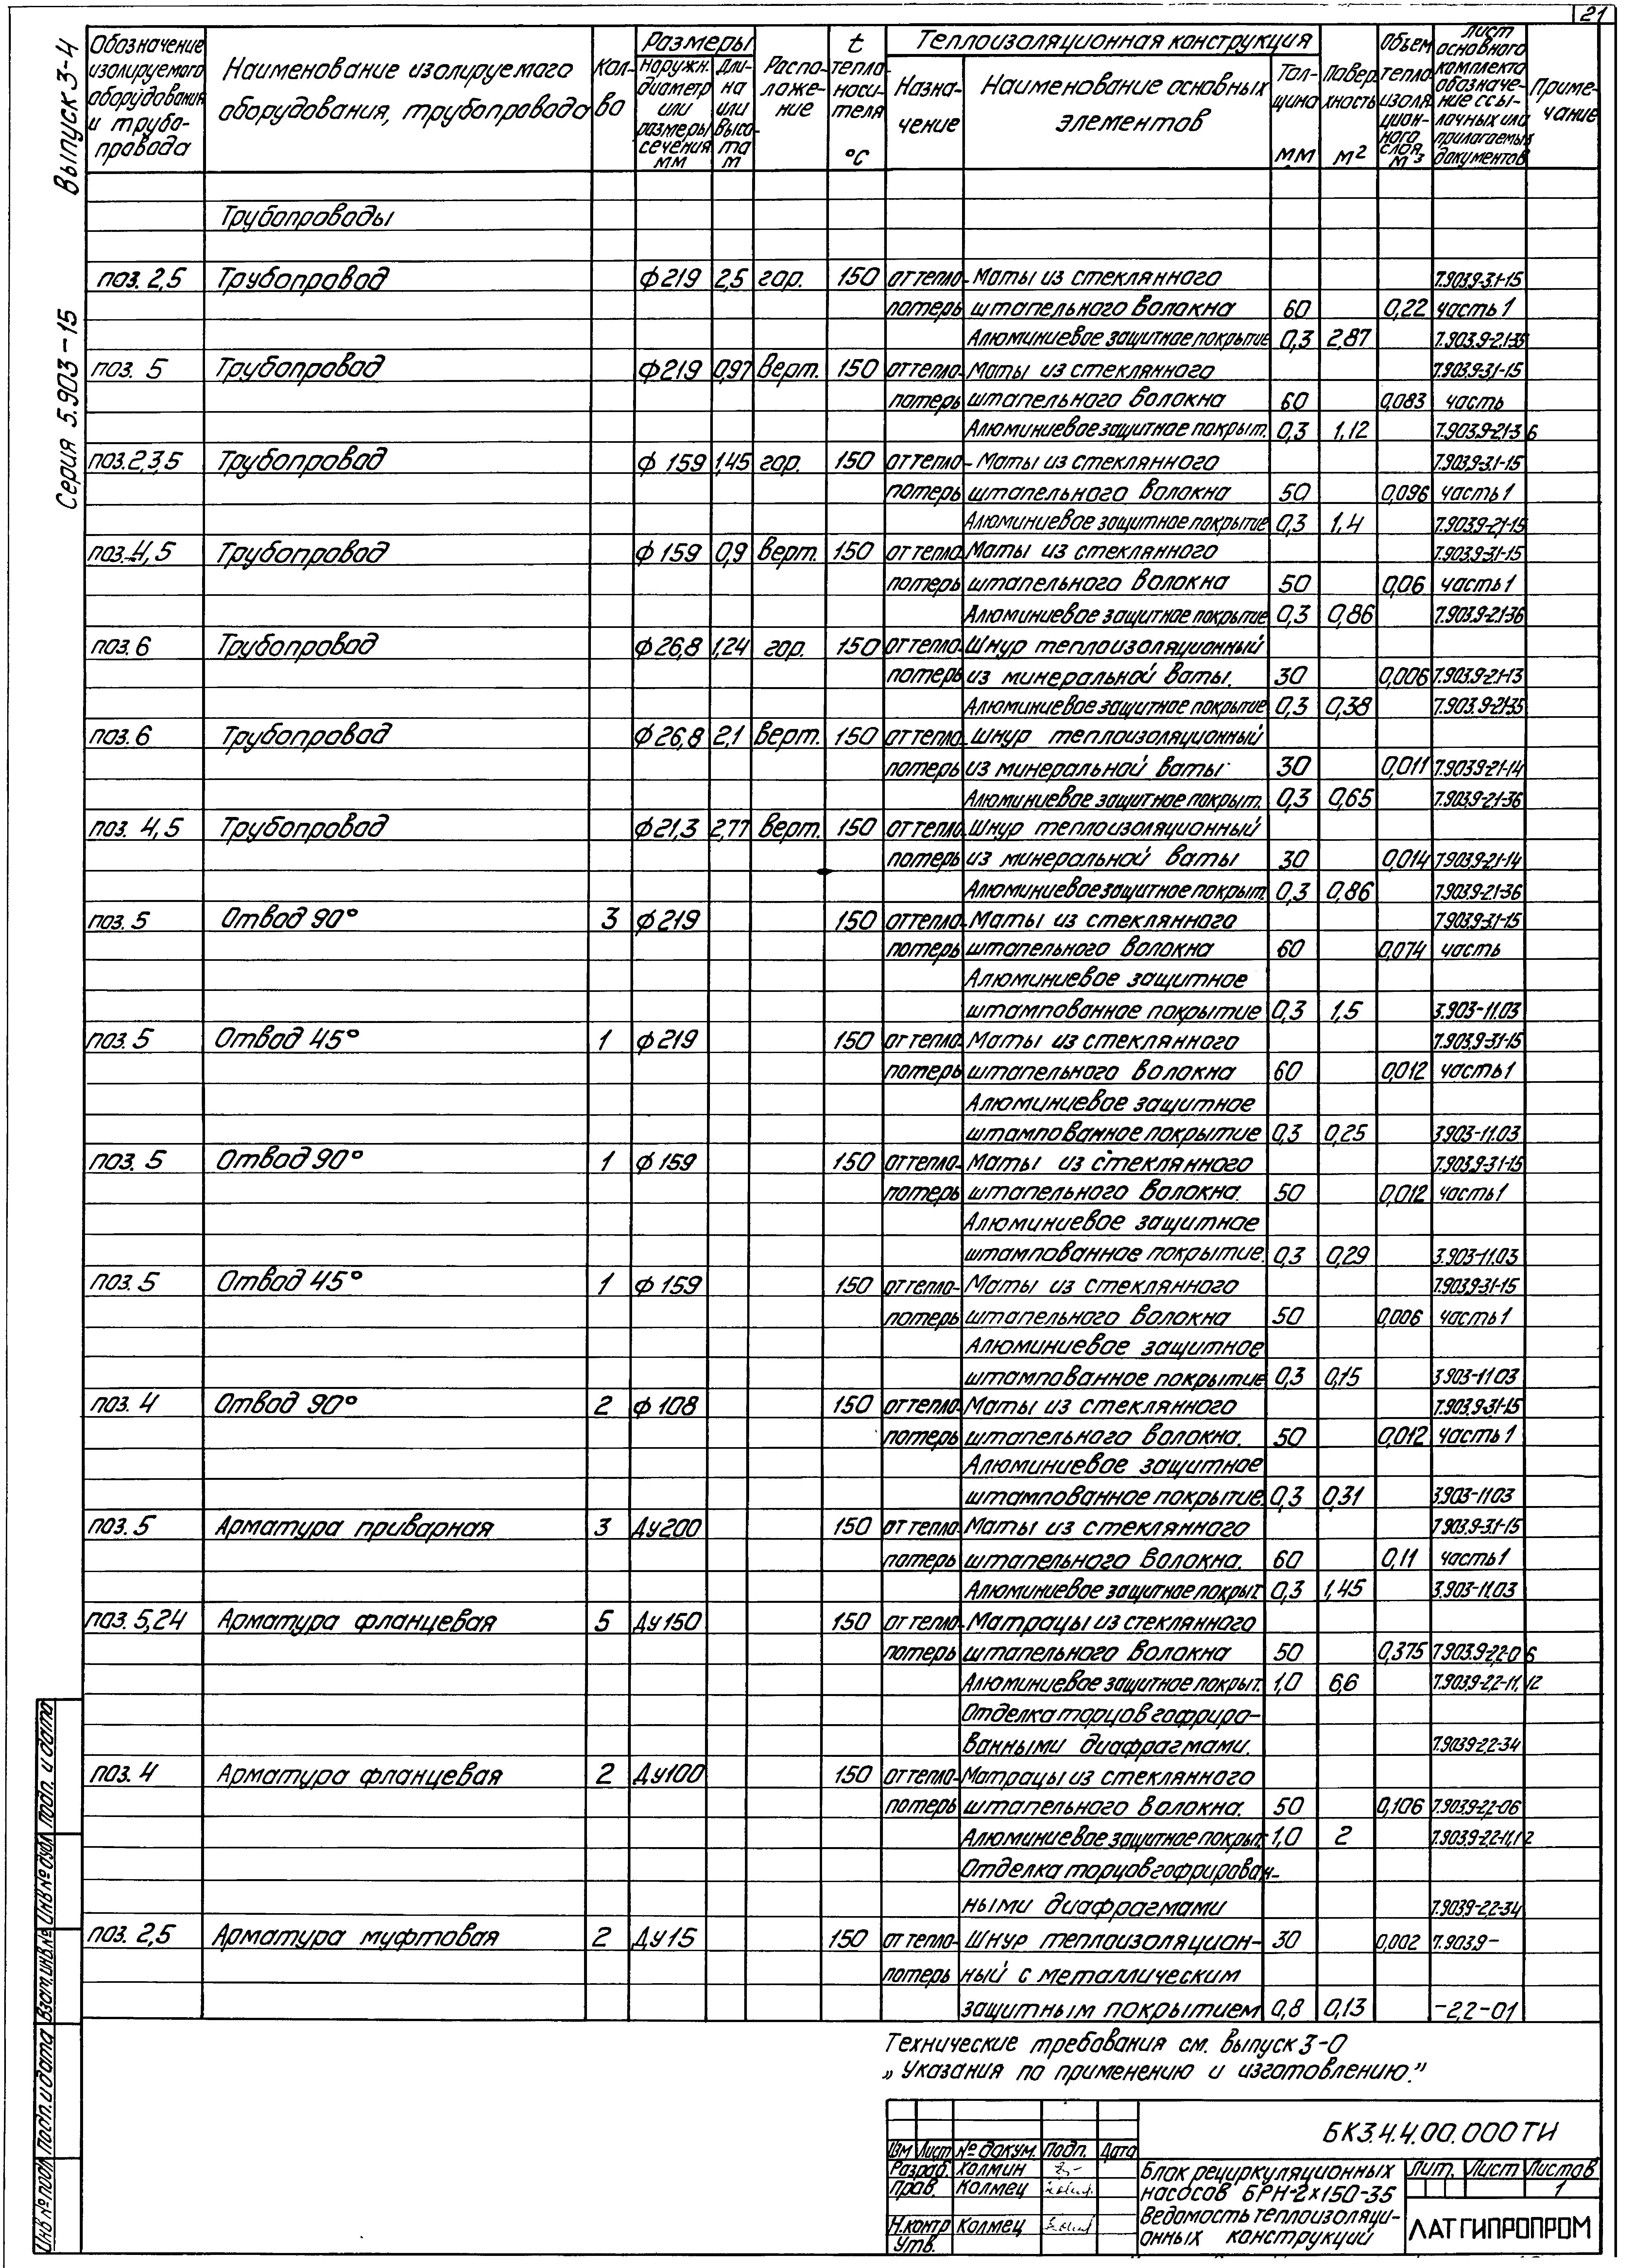 21
Выпуск 3-4
Серия 5.903-15
Обозначение изолируемого оборудования и трубопровода
Наименование изолируемого оборудования, трубопровода
Кол-во
Размеры
Наружн. диаметр или размеры сечения мм
Длина или высота м
Располо-жение
t теплоноси-теля °C
Теплоизоляционная конструкция
Назна-чение
Наименование основных элементов
Тол-щина мм
Поверхность м2
Объем теплоизоляционного слоя м3
Лист основного комплекта обозначе-ние ссы-лочных или прилагаемых документов
Приме-чание
Трубопроводы
поз. 2,5 Трубопровод ф219 2,5 гор. 150 от тепло- Маты из стеклянного 7.903.9-3.1-15
потерь штапельного волокна 60 0,22 часть 1
Алюминиевое защитное покрытие 0,3 2,87 7.903.9-2.1-35
поз. 5 Трубопровод ф219 0,97 верт. 150 от тепло- Маты из стеклянного 7.903.9-3.1-15
потерь штапельного волокна 60 0,083 часть
Алюминиевое защитное покрыт. 0,3 1,12 7.903.9-2.1-36
поз. 2,3,5 Трубопровод ф 159 1,45 гор. 150 от тепло- Маты из стеклянного 7.903.9-3.1-15
потерь штапельного волокна 50 0,096 часть 1
Алюминиевое защитное покрытие 0,3 1,4 7.903.9-2.1-15
поз. 4,5 Трубопровод ф 159 0,9 верт. 150 от тепло Маты из стеклянного 7.903.9-3.1-15
потерь штапельного волокна 50 0,06 часть 1
Алюминиевое защитное покрытие 0,3 0,86 7.903.9-2.1-36
поз. 6 Трубопровод ф26,8 1,24 гор. 150 от тепло. Шнур теплоизоляционный
потерь из минеральной ваты. 30 0,006 7.903.9-2.1-13
Алюминиевое защитное покрытие 0,3 0,38 7.903.9-2.1-35
поз. 6 Трубопровод ф26,8 2,1 верт. 150 от тепло- Шнур теплоизоляционный
потерь из минеральной ваты 30 0,011 7.903.9-2.1-14
Алюминиевое защитное покрыт. 0,3 0,65 7.903.9-2.1-36
поз. 4,5 Трубопровод ф21,3 2,77 верт. 150 от тепло. Шнур теплоизоляционный
потерь из минеральной ваты 30 0,014 7.903.9-2.1-14
Алюминиевое защитное покрыт. 0,3 0,86 7.903.9-2.1-36
поз. 5 Отвод 90° 3 ф219 150 от тепло- Маты из стеклянного 7.903.9-3.1-15
потерь штапельного волокна 60 0,074 часть
Алюминиевое защитное
штампованное покрытие 0,3 1,5 3.903-11.03
поз. 5 Отвод 45° 1 ф219 150 от тепло- Маты из стеклянного 7.903.9-3.1-15
потерь штапельного волокна 60 0,012 часть 1
Алюминиевое защитное
штампованное покрытие 0,3 0,25 3.903-11.03
поз. 5 Отвод 90° 1 ф 159 150 от тепло- Маты из стеклянного 7.903.9-3.1-15
потерь штапельного волокна. 50 0,012 часть 1
Алюминиевое защитное
штампованное покрытие. 0,3 0,29 3.903-11.03
поз. 5 Отвод 45° 1 ф 159 150 от тепло- Маты из стеклянного 7.903.9-3.1-15
потерь штапельного волокна 50 0,006 часть 1
Алюминиевое защитное
штампованное покрытие 0,3 0,15 3.903-11.03
поз. 4 Отвод 90° 2 ф 108 150 от тепло- Маты из стеклянного 7.903.9-3.1-15
потерь штапельного волокна. 50 0,012 часть 1
Алюминиевое защитное
штампованное покрытие. 0,3 0,31 3.903-11.03
поз. 5 Арматура приварная 3 Ду200 150 от тепло Маты из стеклянного 7.903.9-3.1-15
потерь штапельного волокна. 60 0,11 часть 1
Алюминиевое защитное покрыт. 0,3 1,45 3.903-11.03
поз. 5,24 Арматура фланцевая 5 Ду150 150 от тепло- Матрацы из стеклянного
потерь штапельного волокна 50 0,375 7.903.9-2.2-06
Алюминиевое защитное покрыт. 1,0 6,6 7.903.9-2.2-11,12
Отделка торцов гофриро-
ванными диафрагмами. 7.903.9-2.2-34
поз. 4 Арматура фланцевая 2 Ду100 150 от тепло- Матрацы из стеклянного
потерь штапельного волокна. 50 0,106 7.903.9-2.2-06
Алюминиевое защитное покрыт. 1,0 2 7.903.9-2.2-11,12
Отделка торцов гофрирован-
ными диафрагмами 7.903.9-2.2-34
поз. 2,5 Арматура муфтовая 2 Ду15 150 от тепло- Шнур теплоизоляцион- 30 0,002 7.903.9-
потерь ный с металлическим
защитным покрытием 0,8 0,13 -2.2-01
Технические требования см. выпуск 3-0
„Указания по применению и изготовлению."
БК3.4.4.00.000ТИ
Изм Лист № докум. Подп. Дата
Разраб. Холмин
Пров. Колмец
Н.контр Колмец
Утв.
Блок рециркуляционных
насосов БРН-2х150-35
Ведомость теплоизоляци-
онных конструкций
Лит. Лист Листов
1
ЛАТГИПРОПРОМ
Инв № подл Подп. и дата Взам.инв.№ Инв № дубл Подп. и дата